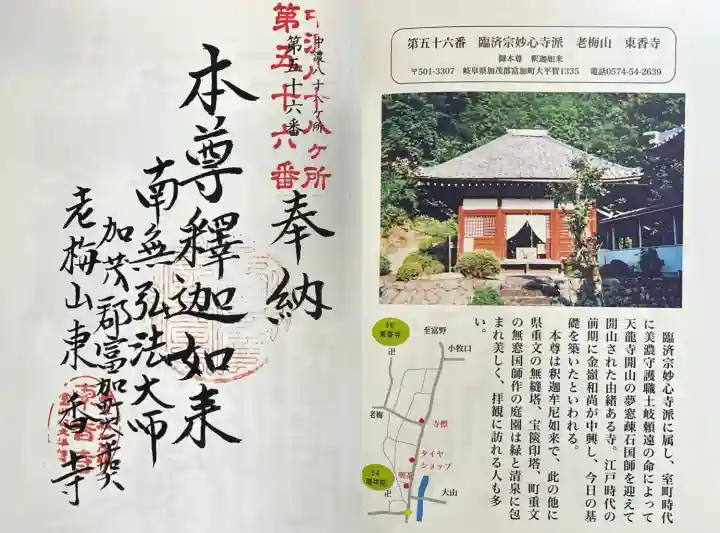 中濃八十八ヶ所
第五十六番
中濃八十八ヶ所
第五十六番
奉納
本尊釋迦如来
南無弘法大師
加茂郡富加町大平賀
老梅山東香寺
東香寺
第五十六番　臨済宗妙心寺派　老梅山　東香寺
御本尊　釈迦如来
〒501-3307　岐阜県加茂郡富加町大平賀1335　電話0574-54-2639
臨済宗妙心寺派に属し、室町時代
に美濃守護職土岐頼遠の命によって
天龍寺開山の夢窓疎石国師を迎えて
開山された由緒ある寺。江戸時代の
前期に金嶺和尚が中興し、今日の基
礎を築いたといわれる。
本尊は釈迦牟尼如来で、此の他に
県重文の無縫塔、宝篋印塔、町重文
の無窓国師作の庭園は緑と清泉に包
まれ美しく、拝観に訪れる人も多
い。
56
東香寺
至富野
卍
小牧口
老梅
寺標
タイヤ
ショップ
喫茶
大山
卍